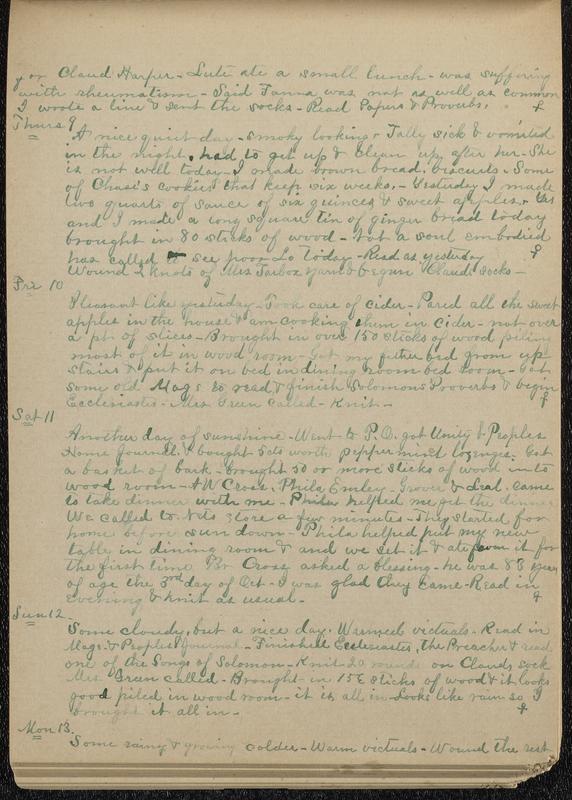 y or Claud Harper - Lute ate a small lunch - was suffering
with rheumatism - Said Fanna was not as well as common
I wrote a line & sent the socks - Read Papers & Proverbs.
Thurs 9
A nice quiet day - smoky looking - Tally sick & vomited
in the night, had to get up & clean up after her - She
is not well today - I made brown bread, biscuits, Some
of Chase's cookies that keep six weeks, - Yesterday I made
two quarts of sauce of six quinces & sweet apples,
and I made a long square tin of ginger bread today
brought in 80 sticks of wood - Not a soul embodied
has called to see poor Lo today - Read as yesterday
Wound 2 knots of Mrs Tarbox yarn & began Clauds socks -
Fri 10
Pleasant like yesterday - Took care of cider - Pared all the sweet
apples in the house & am cooking them in cider - not over
a pt. of slices - Brought in over 150 sticks of wood piling
most of it in wood room - Got my futher bed from up
stairs & put it on bed in dining room bed room - Got
some old Mags to read, & finish Solomons Proverbs & begin
Ecclesiastes - Mrs Green called - Knit -
Sat 11
Another day of sunshine - Went to P.O. got Unity & Peoples
Home Journal, & bought 5cts worth peppermint lozenges. Got
a basket of bark - Brought 50 or more sticks of wood into
wood room - A W Cross, Phila, Emley, Grover & Leal. came
to take dinner with me - Phila helped me get the dinner
We called to Nets store a few minutes - They started for
home before sun down - Phila helped put my new
table in dining room & and we set it & ate from it for
the first time Br Cross asked a blessing - he was 83 years
of age the 3rd day of Oct - I was glad they came - Read in
evening & knit as usual -
Sun 12
Some cloudy, but a nice day. Warmed victuals - Read in
Mags. & Peoples Journal - Finished Ecclesiastes, the Preacher & read
one of the Songs of Solomon - Knit 20 rounds on Clauds sock
Mrs Green called - Brought in 158 sticks of wood & it looks
good piled in wood room - it is all in - Looks like rain so I
brought it all in -
Mon 13.
Some rainy & growing colder - Warm victuals - Wound the rest